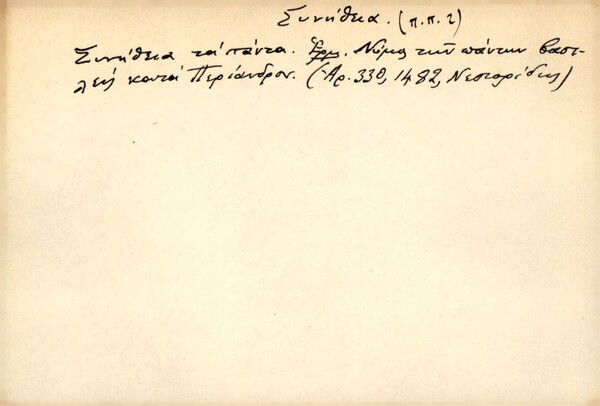 Συνήθεια. (π.π. 2)
Συνήθεια τά πάντα. Ἑρμ. Νόμος τῶν πάντων βασι-
λεύς κατά Περίανδρον. (Ἀρ. 330, 1482, Νεστορίδης)